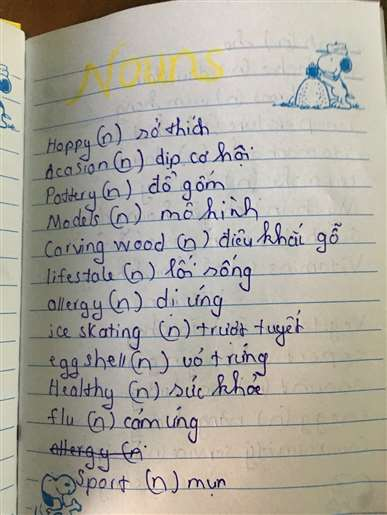 Nouns
Happy (n) sở thích
Acasion (n) dịp cơ hội
Pottery (n) đồ gốm
Models (n) mô hình
Carving wood (n) điêu khắc gỗ
lifestale (n) lối sống
allergy (n) dị ứng
ice skating (n) trượt tuyết
egg shell (n) vỏ trứng
Healthy (n) sức khỏe
flu (n) cảm ứng
allergy (n)
Sport (n) mụn